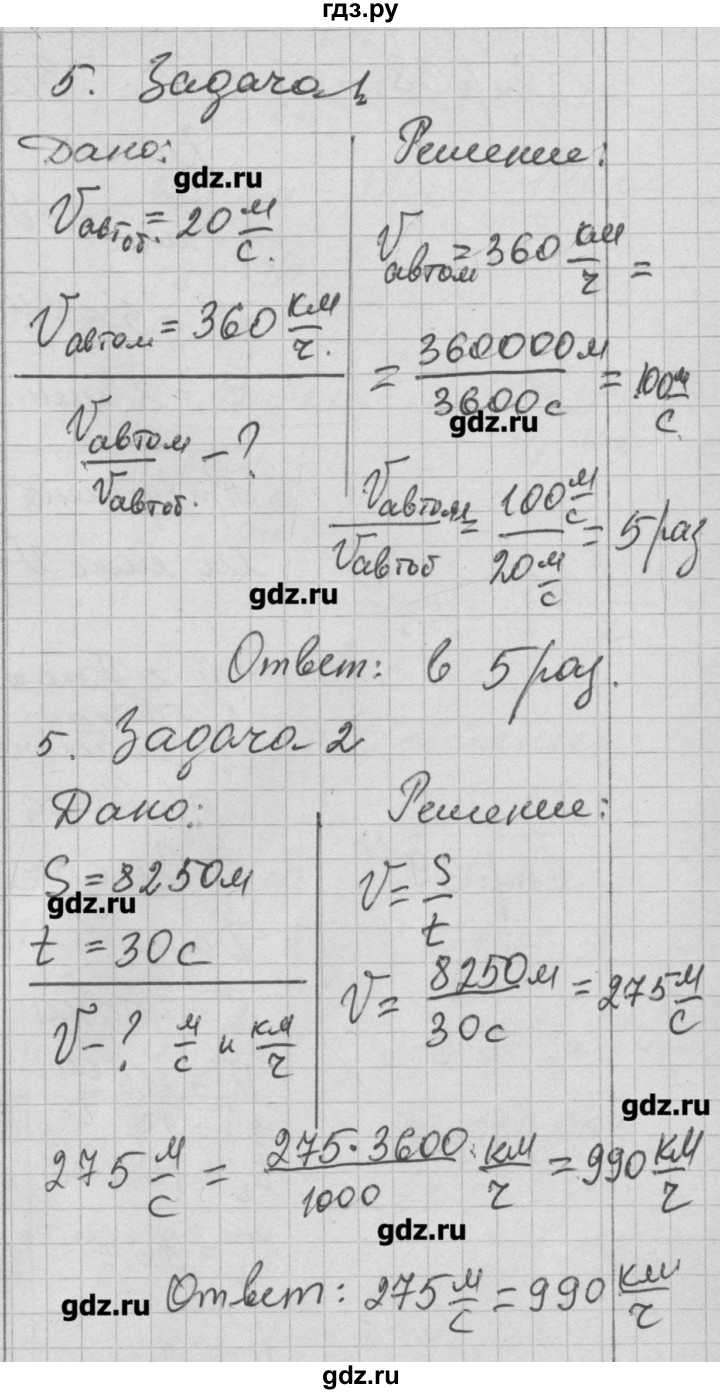 гдз.ру
5. Задача 1
Дано:
Vавтоб. = 20 м/с.
Vавтом = 360 км/ч.
Vавтом/Vавтоб. - ?
gdz.ru
Решение:
Vавтом = 360 км/ч =
= 360000м/3600с = 100 м/с
gdz.ru
Vавтом/Vавтоб = 100 м/с / 20 м/с = 5 раз
gdz.ru
Ответ: в 5 раз.
5. Задача 2
Дано:
S = 8250м
gdz.ru
t = 30с
V - ? м/с и км/ч
Решение:
V = S/t
V = 8250м/30с = 275 м/с
gdz.ru
275 м/с = 275·3600/1000 км/ч = 990 км/ч
gdz.ru
Ответ: 275 м/с = 990 км/ч
gdz.ru
gdz.ru